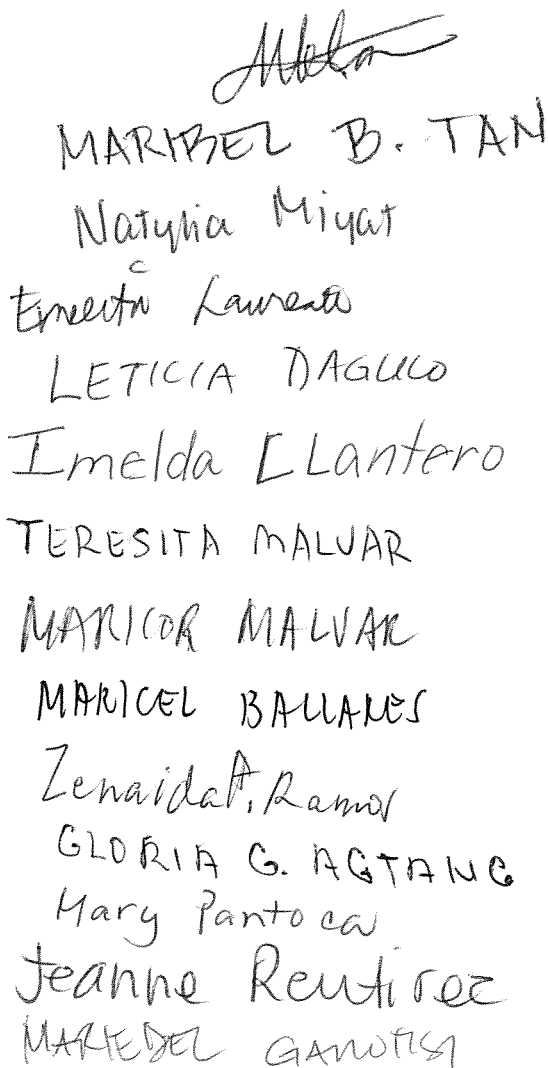 MARIBEL B. TAN
Natylia Miyat
Laureata
LETICIA DAGUCO
Imelda LLantero
TERESITA MALVAR
MARICOR MALVAR
MARICEL BALLARES
Zenaida A. Ramos
GLORIA G. AGTANG
Mary Pantoca
Jeanne Reutirez
MARIEDEL GANOTISI